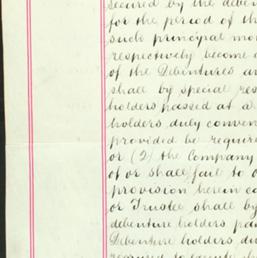 secured by the deben
for the period of th
such principal mon
respectively become
of the Debentures an
shall by special res
holders passed at a
holders duly conven
provided be require
or (2) the Company
of or shall fail to
provision herein co
or Trustee shall by
debenture holders pas
Debenture holders du
required to execute